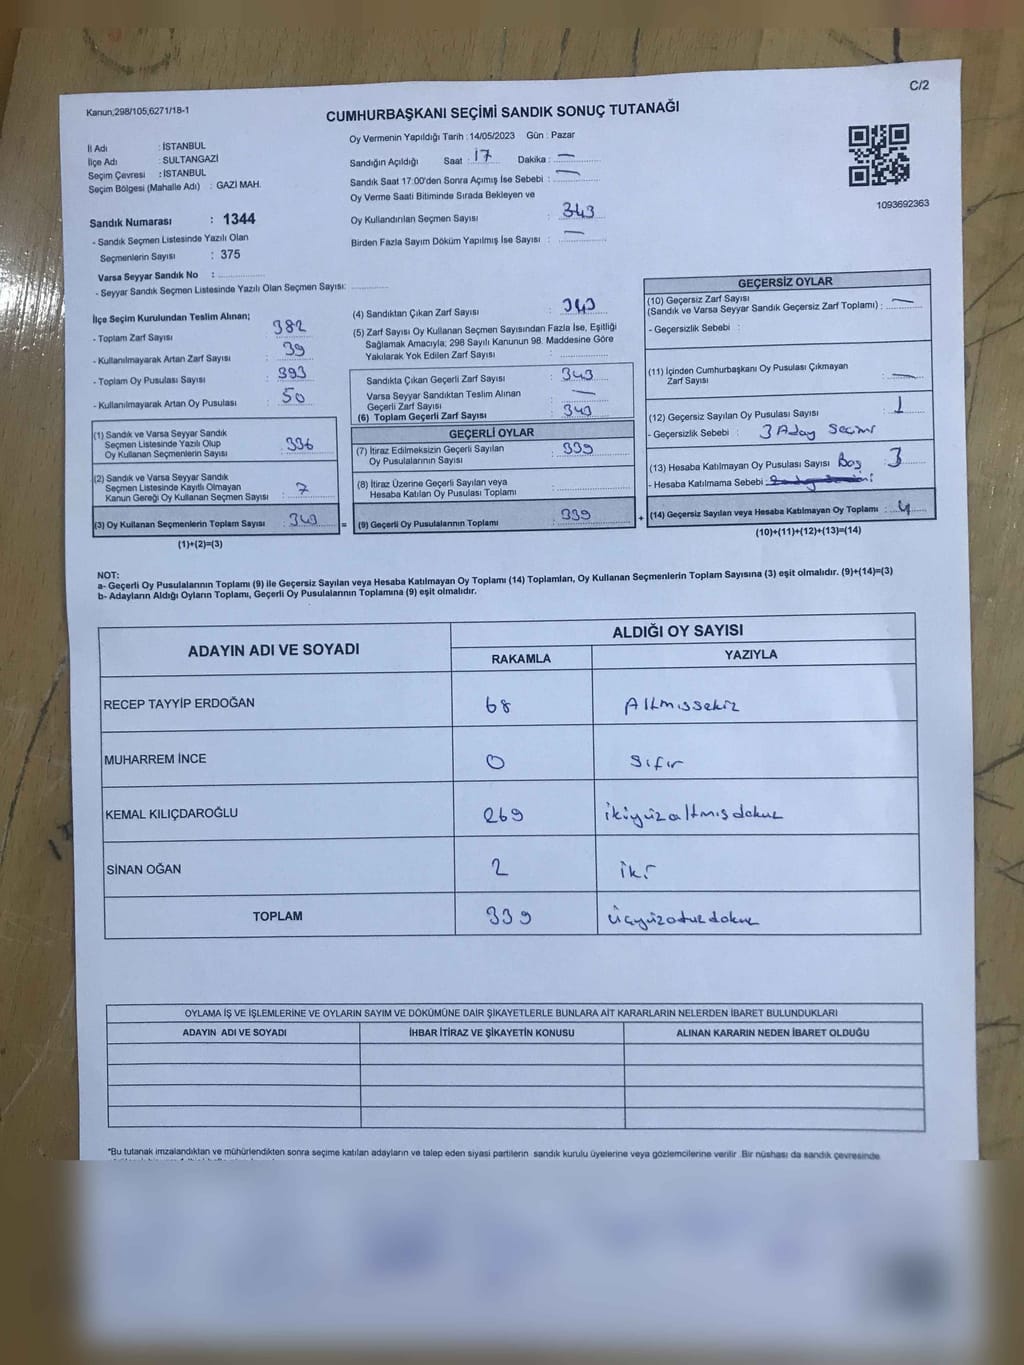 C/2
Kanun,298/105,6271/18-1
CUMHURBAŞKANI SEÇİMİ SANDIK SONUÇ TUTANAĞI
İl Adı : İSTANBUL
İlçe Adı : SULTANGAZİ
Seçim Çevresi : İSTANBUL
Seçim Bölgesi (Mahalle Adı) : GAZİ MAH.
Sandık Numarası : 1344
- Sandık Seçmen Listesinde Yazılı Olan
Seçmenlerin Sayısı : 375
Varsa Seyyar Sandık No :
- Seyyar Sandık Seçmen Listesinde Yazılı Olan Seçmen Sayısı:
Oy Vermenin Yapıldığı Tarih : 14/05/2023 Gün : Pazar
Sandığın Açıldığı Saat : 17 Dakika : —
Sandık Saat 17:00'den Sonra Açımış İse Sebebi : —
Oy Verme Saati Bitiminde Sırada Bekleyen ve
Oy Kullandırılan Seçmen Sayısı : 343
Birden Fazla Sayım Döküm Yapılmış İse Sayısı : —
1093692363
İlçe Seçim Kurulundan Teslim Alınan;
- Toplam Zarf Sayısı : 382
- Kullanılmayarak Artan Zarf Sayısı : 39
- Toplam Oy Pusulası Sayısı : 393
- Kullanılmayarak Artan Oy Pusulası : 50
(1) Sandık ve Varsa Seyyar Sandık
Seçmen Listesinde Yazılı Olup
Oy Kullanan Seçmenlerin Sayısı : 336
(2) Sandık ve Varsa Seyyar Sandık
Seçmen Listesinde Kayıtlı Olmayan
Kanun Gereği Oy Kullanan Seçmen Sayısı : 7
(3) Oy Kullanan Seçmenlerin Toplam Sayısı : 343 =
(1)+(2)=(3)
(4) Sandıktan Çıkan Zarf Sayısı : 343
(5) Zarf Sayısı Oy Kullanan Seçmen Sayısından Fazla İse, Eşitliği
Sağlamak Amacıyla; 298 Sayılı Kanunun 98. Maddesine Göre
Yakılarak Yok Edilen Zarf Sayısı :
Sandıkta Çıkan Geçerli Zarf Sayısı : 343
Varsa Seyyar Sandıktan Teslim Alınan
Geçerli Zarf Sayısı : —
(6) Toplam Geçerli Zarf Sayısı : 343
GEÇERLİ OYLAR
(7) İtiraz Edilmeksizin Geçerli Sayılan
Oy Pusulalarının Sayısı : 339
(8) İtiraz Üzerine Geçerli Sayılan veya
Hesaba Katılan Oy Pusulası Toplamı :
(9) Geçerli Oy Pusulalarının Toplamı : 339 +
GEÇERSİZ OYLAR
(10) Geçersiz Zarf Sayısı
(Sandık ve Varsa Seyyar Sandık Geçersiz Zarf Toplamı) : —
- Geçersizlik Sebebi :
(11) İçinden Cumhurbaşkanı Oy Pusulası Çıkmayan
Zarf Sayısı : —
(12) Geçersiz Sayılan Oy Pusulası Sayısı : 1
- Geçersizlik Sebebi : 3 Aday Seçimi
(13) Hesaba Katılmayan Oy Pusulası Sayısı Boş : 3
- Hesaba Katılmama Sebebi
(14) Geçersiz Sayılan veya Hesaba Katılmayan Oy Toplamı : 4
(10)+(11)+(12)+(13)=(14)
NOT:
a- Geçerli Oy Pusulalarının Toplamı (9) ile Geçersiz Sayılan veya Hesaba Katılmayan Oy Toplamı (14) Toplamları, Oy Kullanan Seçmenlerin Toplam Sayısına (3) eşit olmalıdır. (9)+(14)=(3)
b- Adayların Aldığı Oyların Toplamı, Geçerli Oy Pusulalarının Toplamına (9) eşit olmalıdır.
ADAYIN ADI VE SOYADI
ALDIĞI OY SAYISI
RAKAMLA YAZIYLA
RECEP TAYYİP ERDOĞAN 68 Altmışsekiz
MUHARREM İNCE 0 Sıfır
KEMAL KILIÇDAROĞLU 269 ikiyüzaltmışdokuz
SİNAN OĞAN 2 iki
TOPLAM 339 Üçyüzotuzdokuz
OYLAMA İŞ VE İŞLEMLERİNE VE OYLARIN SAYIM VE DÖKÜMÜNE DAİR ŞİKAYETLERLE BUNLARA AİT KARARLARIN NELERDEN İBARET BULUNDUKLARI
ADAYIN ADI VE SOYADI İHBAR İTİRAZ VE ŞİKAYETİN KONUSU ALINAN KARARIN NEDEN İBARET OLDUĞU
*Bu tutanak imzalandıktan ve mühürlendikten sonra seçime katılan adayların ve talep eden siyasi partilerin sandık kurulu üyelerine veya gözlemcilerine verilir .Bir nüshası da sandık çevresinde